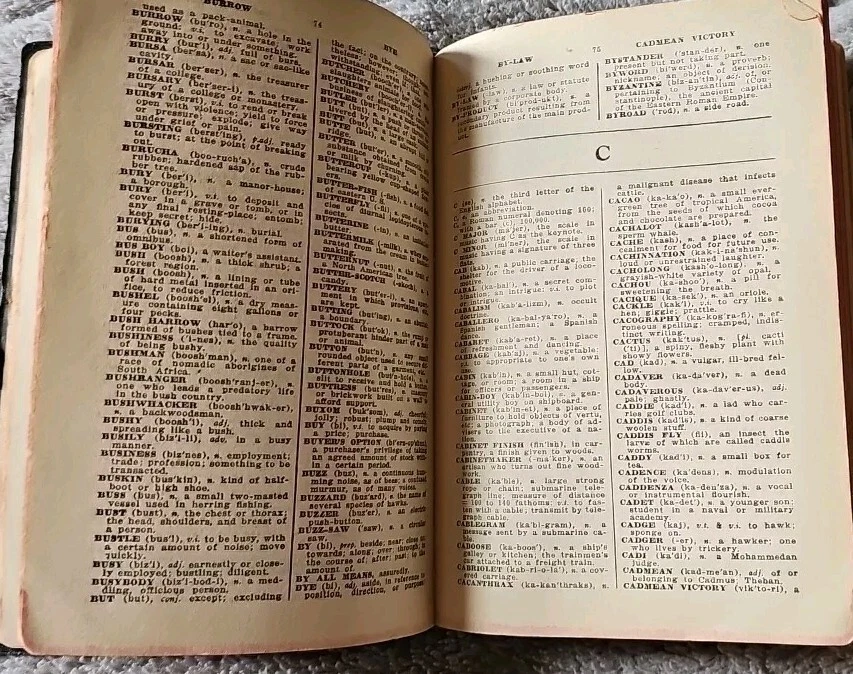 BURROW
74
BYE
used as a pack-animal.
BURROW (bu'ro), n. a hole in the
ground: v.i. to excavate; work
away into or under something.
BURRY (bur'i), adj. full of burs.
BURSA (ber'sa), n. a sac or sac-like
cavity.
BURSAR (ber'ser), n. the treasurer
of a college.
BURSARY (ber'ser-i), n. the treas-
ury of a college or monastery.
BURST (berst), v.t. to rend or break
open with violence; yield to force
or pressure; explode; give way
under grief or pain.
BURSTING (berst'ing), p.adj. ready
to burst; at the point of breaking
out.
BURUCHA (boo-ruch'a), n. crude
rubber; hardened sap of the rub-
ber tree.
BURY (ber'i), n. a manor-house;
a borough.
BURY (ber'i), v.t. to deposit and
cover in a grave or tomb, or in
any final resting-place; entomb;
keep secret; hide.
BURYING (ber'i-ing), n. burial.
BUS (bus), n. a shortened form of
omnibus.
BUS BOY (boi), a waiter's assistant.
BUSH (boosh), n. a thick shrub; a
forest region.
BUSH (boosh), n. a lining or tube
of hard metal inserted in an ori-
fice, to reduce friction.
BUSHEL (boosh'el), n. a dry meas-
ure containing eight gallons or
four pecks.
BUSH HARROW (har'o), a harrow
formed of bushes tied to a frame.
BUSHINESS ('i-nes), n. the quality
of being bushy.
BUSHMAN (boosh'man), n. one of a
race of nomadic aborigines of
South Africa.
BUSHRANGER (boosh'ranj-er), n.
one who leads a predatory life
in the bush country.
BUSHWHACKER (boosh'hwak-er),
n. a backwoodsman.
BUSHY (boosh'i), adj. thick and
spreading like a bush.
BUSILY (biz'i-li), adv. in a busy
manner.
BUSINESS (biz'nes), n. employment;
trade; profession; something to be
transacted.
BUSKIN (bus'kin), n. kind of half-
boot or high shoe.
BUSS (bus), n. a small two-masted
vessel used in herring fishing.
BUST (bust), n. the chest or thorax;
the head, shoulders, and breast of
a person.
BUSTLE (bus'l), v.i. to be busy, with
a certain amount of noise; move
quickly.
BUSY (biz'i), adj. earnestly or close-
ly employed; bustling; diligent.
BUSYBODY (biz'i-bod-i), n. a med-
dling, officious person.
BUT (but), conj. except; excluding
the fact; on the
BUTCHER
BUTCHERY
BUTLER
BUTT
BUTTE
BUTTER (but'er), n.
substance obtained from
or milk by churning.
BUTTERCUP
bearing yellow cup-shaped
ers.
BUTTER-FISH (-fish), n. a food
of eastern U. S.
BUTTERFLY (-fli), n.
cies of diurnal lepidopterous
sects.
BUTTERINE
butter.
BUTTERMILK (-milk), n.
arated from the cream in
BUTTERNUT (-nut), n. the
a North American tree.
BUTTER-SCOTCH (-skoch), n.
candy.
BUTTERY (but'er-i), n. an apart-
ment in which provisions
are kept.
BUTTING (but'ing), n. an
a boundary.
BUTTOCK (but'ok), n. the rump
protuberant hinder part of
or animal.
BUTTON (but'n), n. any small
rounded object used to secure
ferent parts of a garment,
BUTTONHOLE (but'n-hole), n.
slit to receive and hold a button.
BUTTRESS (but'res), n. masonry
or brickwork built on a wall to
afford support.
BUXOM (buk'som), adj. cheerful,
jolly; robust; plump and comely.
BUY (bi), v.t. to acquire by paying
a price; purchase.
BUYER'S OPTION
a purchaser's privilege of taking
an agreed amount of stock
in a certain period.
BUZZ (buz), n. a continuous hum-
ming noise, as of bees; a confused
murmur, as of many voices.
BUZZARD (buz'ard), n. the name of
several species of hawks.
BUZZER (buz'er), n. an electric
push-button.
BUZZ-SAW ('saw), n. a circular
saw.
BY (bi), prep. beside; near; close to;
towards; along; over; through; in
the course of; after; past; to the
amount of.
BY ALL MEANS, assuredly.
BYE (bi), adj. aside, in reference to
position, direction, or purpose:
BY-LAW
75
CADMEAN VICTORY
a hushing or soothing word
to infants.
BY-LAW (law), n. a law or statute
framed by a corporate body.
BY-PRODUCT (biprod-ukt), n. a
secondary product resulting from
the manufacture of the main prod-
uct.
BYSTANDER ('stan-der), n. one
present but not taking part.
BYWORD (bi'werd), n. a proverb;
nickname, an object of derision.
BYZANTINE (biz-an'tin), adj. of, or
pertaining to Byzantium (Con-
stantinople), the ancient capital
of the Eastern Roman Empire.
BYROAD ('rod), n. a side road.
C
C (se), n. the third letter of the
English alphabet.
C. an abbreviation.
C, a Roman numeral denoting 100;
with a bar (C), 100,000.
C MAJOR (ma'jer), the scale in
music having C as the keynote.
C MINOR (mi'ner), the scale in
music having a signature of three
flats.
CAB (kab), n. a public carriage; the
shelter for the driver of a loco-
motive.
CABAL (ka-bal'), n. a secret com-
bination; an intrigue: v.i. to plot
or intrigue.
CABALISM (kab'a-lizm), n. occult
doctrine.
CABALLERO (ka-bal-ya'ro), n. a
Spanish gentleman; a Spanish
dance.
CABARET (kab'a-rot), n. a place
of refreshment and dancing.
CABBAGE (kab'aj), n. a vegetable:
v.t. to appropriate to one's own
use.
CABIN (kab'in), n. a small hut, cot-
tage, or room; a room in a ship
for officers or passengers.
CABIN-BOY (kab'in-boi), n. a gen-
eral utility boy on shipboard.
CABINET (kab'in-et), n. a place of
furniture to hold objects of vertu,
etc.; a photograph; a body of ad-
visers to the executive of a na-
tion.
CABINET FINISH (fin'ish), in car-
pentry, a finish given to woods.
CABINETMAKER (-ma'ker), n. an
artisan who turns out fine wood-
work.
CABLE (ka'ble), n. large strong
rope or chain; submarine tele-
graph line; measure of distance
= 100 to 140 fathoms: v.t. to fas-
ten with a cable; transmit by tele-
graph cable.
CABLEGRAM (ka'bl-gram), n. a
message sent by a submarine ca-
ble.
CABOOSE (ka-boos'), n. a ship's
galley or kitchen; the trainmen's
car attached to a freight train.
CABRIOLET (kab-ri-o-la'), n. a cov-
ered carriage.
CACANTHRAX (ka-kan'thraks), n.
a malignant disease that infects
cattle.
CACAO (ka-ka'o), n. a small ever-
green tree of tropical America,
from the seeds of which cocoa
and chocolate are prepared.
CACHALOT (kash'a-lot), n. the
sperm whale.
CACHE (kash), n. a place of con-
cealment for food for future use.
CACHINNATION (kak-i-na'shun), n.
loud or unrestrained laughter.
CACHOLONG (kash'o-long), n. a
grayish-white variety of opal.
CACHOU (ka-shoo'), n. a pill for
sweetening the breath.
CACIQUE (ka-sek'), n. an oriole.
CACKLE (kak'l), v.i. to cry like a
hen; giggle; prattle.
CACOGRAPHY (ka-kog'ra-fi), n. er-
roneous spelling; cramped, indis-
tinct writing.
CACTUS (kak'tus), n. [pl. cacti
('ti)], a spiny, fleshy plant with
showy flowers.
CAD (kad), n. a vulgar, ill-bred fel-
low.
CADAVER (ka-da'ver), n. a dead
body.
CADAVEROUS (ka-dav'er-us), adj.
pale; ghastly.
CADDIE (kad'i), n. a lad who car-
ries golf clubs.
CADDIS (kad'is), n. a kind of coarse
woolen stuff.
CADDIS FLY (fli), an insect the
larva of which are called caddis
worms.
CADDY (kad'i), n. a small box for
tea.
CADENCE (ka'dens), n. modulation
of the voice.
CADENZA (ka-den'za), n. a vocal
or instrumental flourish.
CADET (ka-det), n. a younger son;
student in a naval or military
academy.
CADGE (kaj), v.t. & v.i. to hawk;
sponge on.
CADGER (-er), n. a hawker; one
who lives by trickery.
CADI (ka'di), n. a Mohammedan
judge.
CADMEAN (kad-me'an), adj. of or
belonging to Cadmus; Theban.
CADMEAN VICTORY (vik'to-ri), a